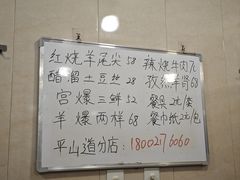 红烧羊尾尖58 辣炒牛肉72
醋溜土豆丝28 孜然羊肾68
宫爆三鲜52 餐具2元/套
羊爆两样68 餐巾纸2元/包
平山道分店:18002176060